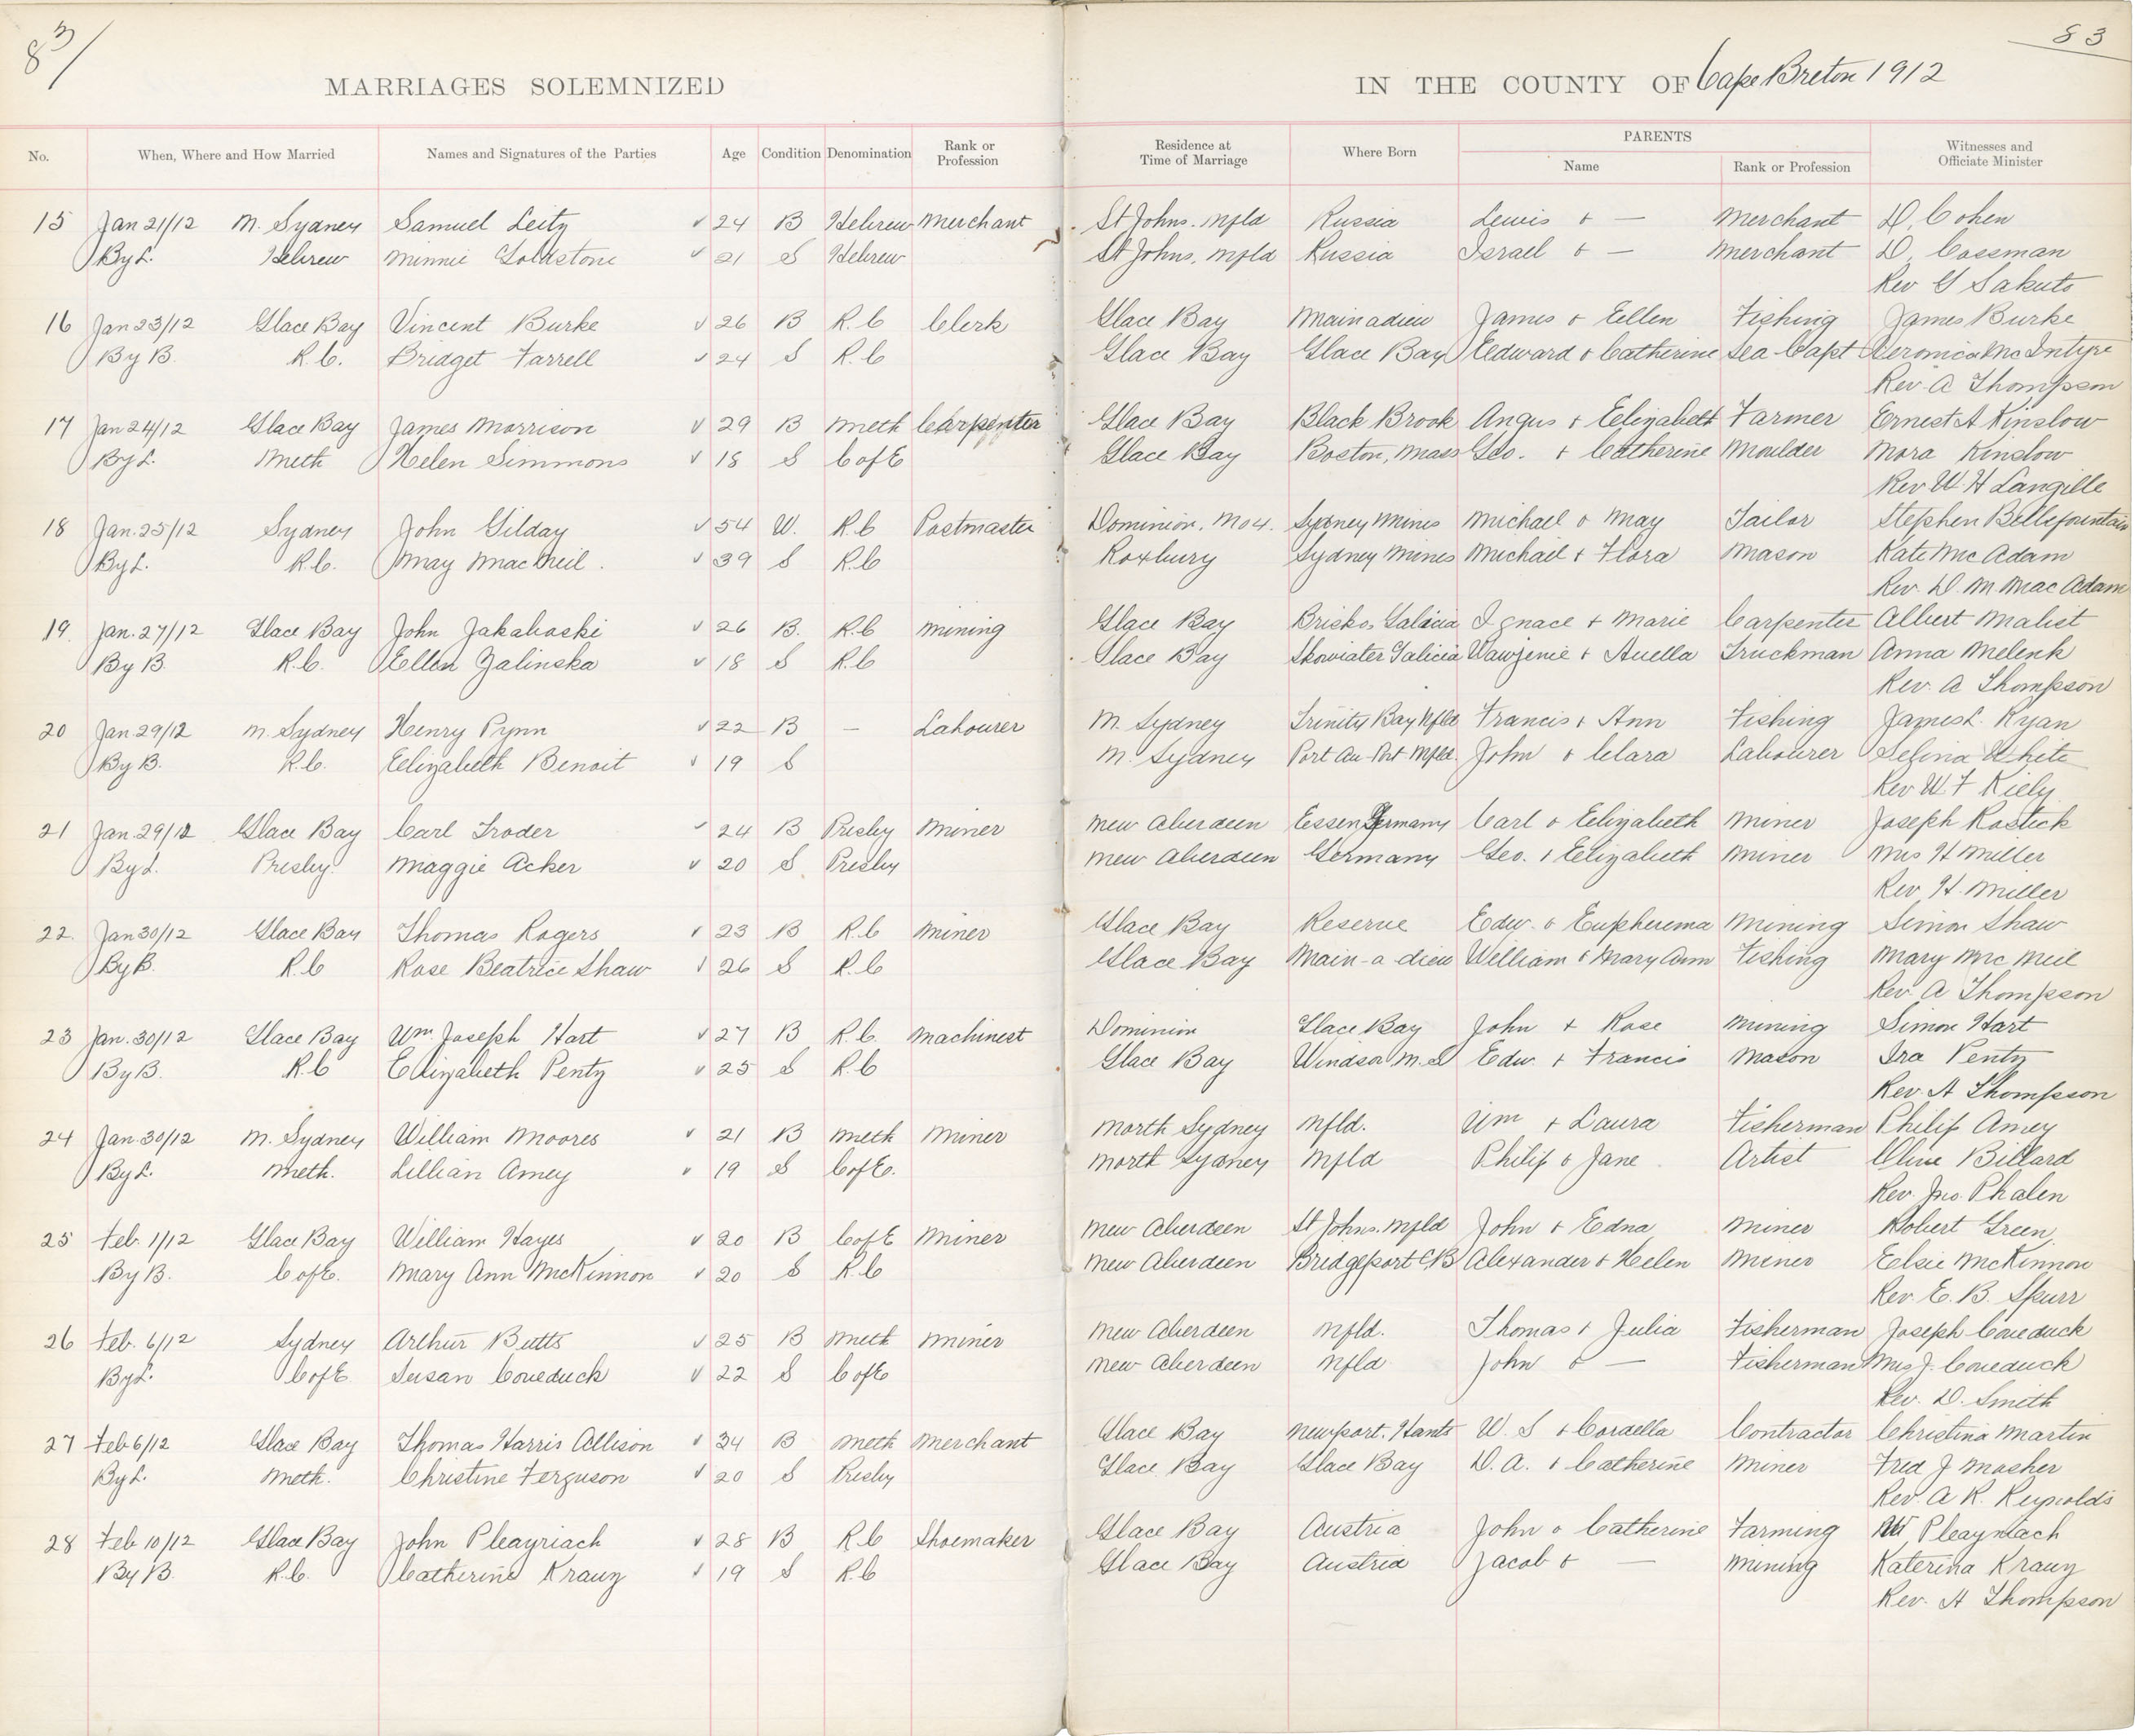 83/
83
MARRIAGES SOLEMNIZED IN THE COUNTY OF Cape Breton 1912
No. When, Where and How Married Names and Signatures of the Parties Age Condition Denomination Rank or Profession Residence at Time of Marriage Where Born PARENTS Name Rank or Profession Witnesses and Officiate Minister
15 Jan 21/12 N. Sydney Samuel Leitz 24 B Hebrew Merchant St Johns. Nfld Russia Lewis + — Merchant D. Cohen
By L. Hebrew Minnie Goldstone 21 S Hebrew St Johns, Nfld Russia Israel + — Merchant D. Cossman
Rev G Sakuts
16 Jan 23/12 Glace Bay Vincent Burke 26 B R.C Clerk Glace Bay Mainadieu James + Ellen Fishing James Burke
By B. R.C. Bridget Farrell 24 S R.C Glace Bay Glace Bay Edward + Catherine Sea Capt Veronica McIntyre
Rev. A Thompson
17 Jan 24/12 Glace Bay James Morrison 29 B Meth Carpenter Glace Bay Black Brook Angus + Elizabeth Farmer Ernest A Kinslow
By L. Meth Helen Simmons 18 S C of E Glace Bay Boston, Mass Geo. + Catherine Moulder Mora Kinslow
Rev W. H Langille
18 Jan. 25/12 Sydney John Gilday 54 W. R.C Postmaster Dominion, No 4. Sydney Mines Michael + May Tailor Stephen Bellefountain
By L. R.C. May MacNeil. 39 S R.C Roxbury Sydney Mines Michael + Flora Mason Kate McAdam
Rev. D. M. MacAdam
19. Jan. 27/12 Glace Bay John Jakaboski 26 B. R.C Mining Glace Bay Brisko, Galicia Ignace + Marie Carpenter Albert Malist
By B. R.C. Ellen Zalinska 18 S R.C Glace Bay Skowiater Galicia Wawjenie + Auella Truckman Anna Melenk
Rev. A Thompson
20 Jan. 29/12 N. Sydney Henry Pynn 22 B — Labourer N. Sydney Trinity Bay Nfld Francis + Ann Fishing James L. Ryan
By B. R.C. Elizabeth Benoit 19 S N. Sydney Port Au-Port Nfld. John + Clara Labourer Selina White
Rev W. F Kiely
21 Jan. 29/12 Glace Bay Carl Troder 24 B Presby Miner New Aberdeen Essen Germany Carl + Elizabeth Miner Joseph Rostick
By L. Presby. Maggie Acker 20 S Presby New Aberdeen Germany Geo. + Elizabeth Miner Mrs H Miller
Rev. H. Miller
22. Jan 30/12 Glace Bay Thomas Rogers 23 B R.C Miner Glace Bay Reserve Edw. + Eupherema Mining Simon Shaw
By B. R.C Rose Beatrice Shaw 26 S R.C Glace Bay Main-a-dieu William + Mary Ann Fishing Mary McNeil
Rev. A Thompson
23 Jan. 30/12 Glace Bay Wm Joseph Hart 27 B R.C. Machinest Dominion Glace Bay John + Rose Mining Simon Hart
By B. R.C Elizabeth Penty 25 S R.C Glace Bay Windsor N.S Edw. + Francis Mason Ira Penty
Rev. A Thompson
24 Jan. 30/12 N. Sydney William Moores 21 B Meth Miner North Sydney Nfld. Wm + Laura Fisherman Philip Amey
By L. Meth. Lillian Amey 19 S C of E. North Sydney Nfld Philip + Jane. Artist Olive Billard
Rev. Jno. Phalen
25 Feb. 1/12 Glace Bay William Hayes 20 B C of E Miner New Aberdeen St Johns. Nfld John + Edna Miner Robert Green
By B. C of E. Mary Ann McKinnon 20 S R.C New Aberdeen Bridgeport CB Alexander + Helen Miner Elsie McKinnon
Rev. E. B. Spurr
26 Feb. 6/12 Sydney Arthur Butts 25 B Meth Miner New Aberdeen Nfld. Thomas + Julia Fisherman Joseph Coveduck
By L. C of E. Susan Coveduck 22 S C of E New Aberdeen Nfld John + — Fisherman Mrs J. Coveduck
Rev. D. Smith
27 Feb 6/12 Glace Bay Thomas Harris Allison 34 B Meth Merchant Glace Bay Newport. Hants W. S + Cordella Contractor Christina Martin
By L. Meth. Christine Ferguson 20 S Presby Glace Bay Glace Bay D. A. + Catherine Miner Fred J Mosher
Rev. A R. Reynolds
28 Feb 10/12 Glace Bay John Pleayriach 28 B R.C Shoemaker Glace Bay Austria John + Catherine Farming Pleayriach
By B. R.C. Catherine Krauz 19 S R.C Glace Bay Austria Jacob + — Mining Katerina Krauz
Rev. A Thompson